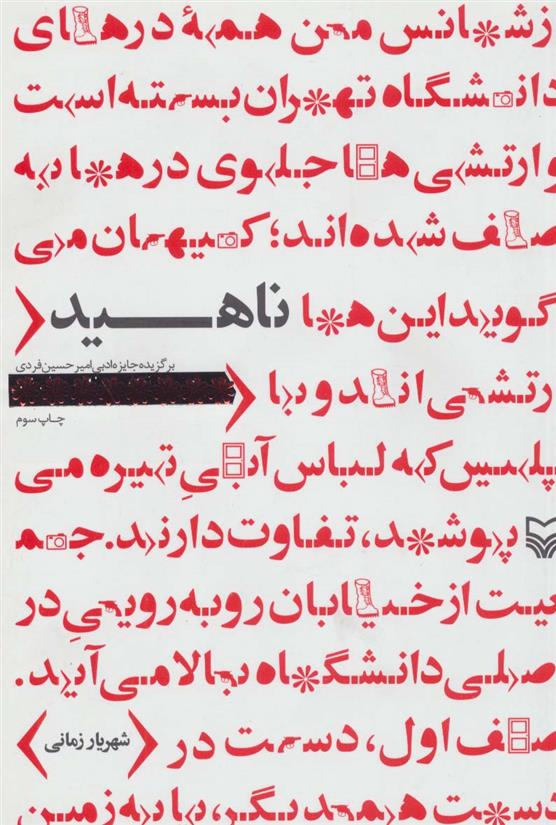 ازشانس من همهٔ درهای
دانشگاه تهران بسته است
و ارتشی ها جلوی درها به
صف شده اند؛ کیهان می
گوید این ها
ناهید
برگزیده جایزه ادبی امیرحسین فردی
ارتشی اند و با
چاپ سوم
پلیس که لباس آبیِ تیره می
پوشد، تفاوت دارند. جم
عیت از خیابان روبه روییِ در
اصلی دانشگاه بالا می آید.
صف اول، دست در
شهریار زمانی
دست همدیگر، پا به زمین